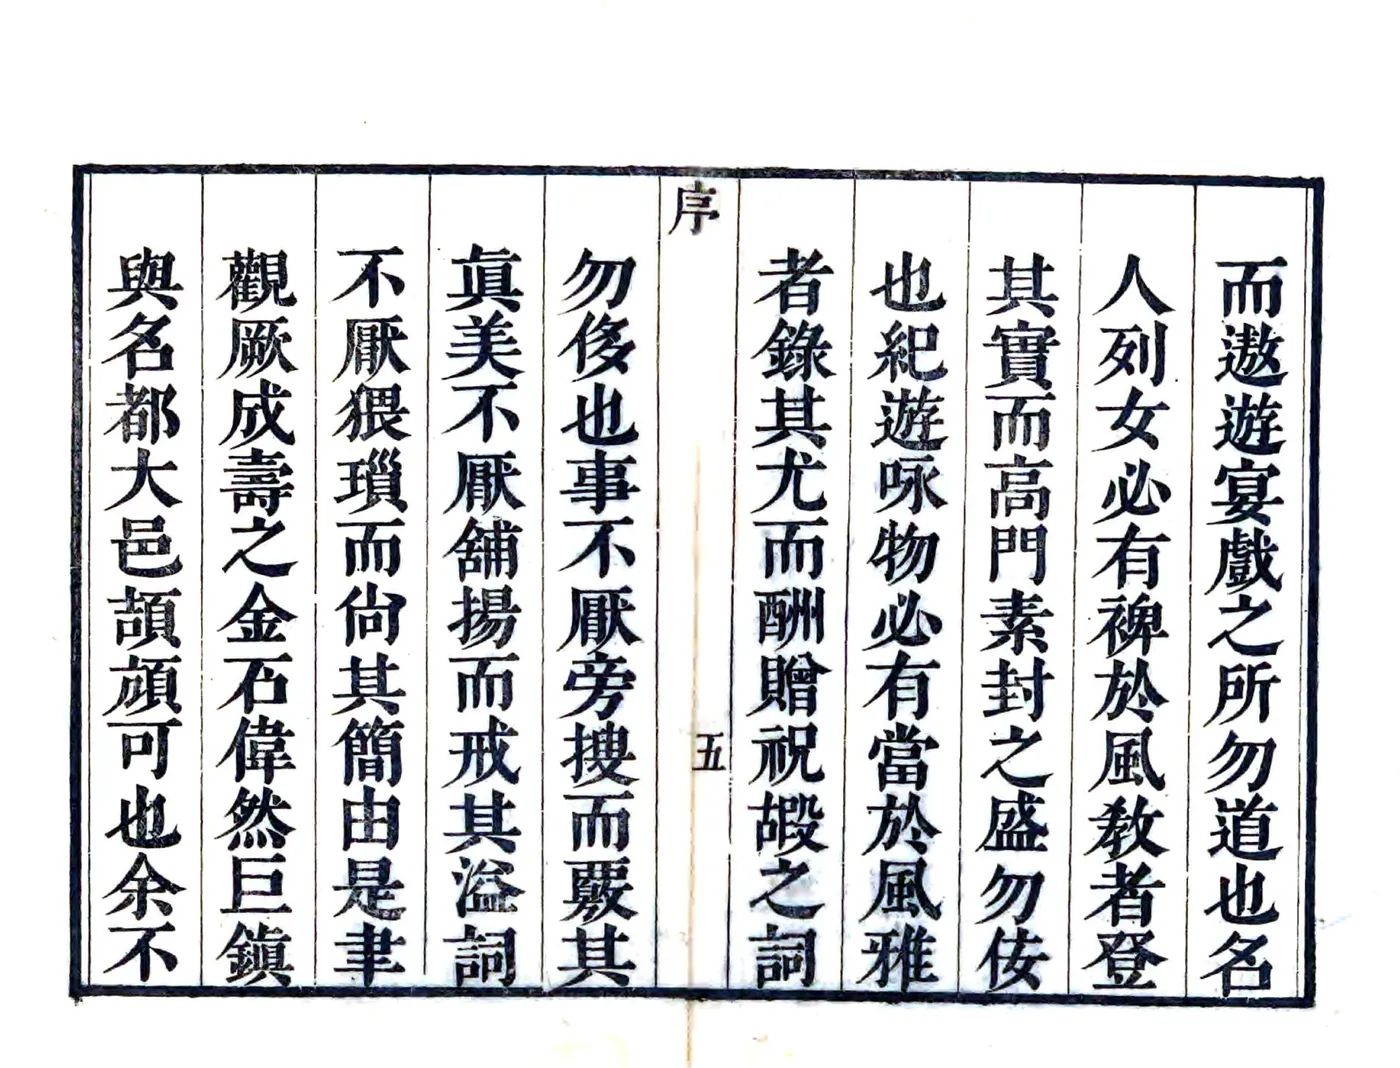 而遨遊宴戲之所勿道也名
人列女必有裨於風敎者登
其實而高門素封之盛勿侫
也紀遊咏物必有當於風雅
者錄其尤而酬贈祝嘏之詞
序
五
勿侈也事不厭旁搜而覈其
眞美不厭舖揚而戒其溢詞
不厭猥瑣而尙其簡由是聿
觀厥成壽之金石偉然巨鎭
與名都大邑頡頏可也余不